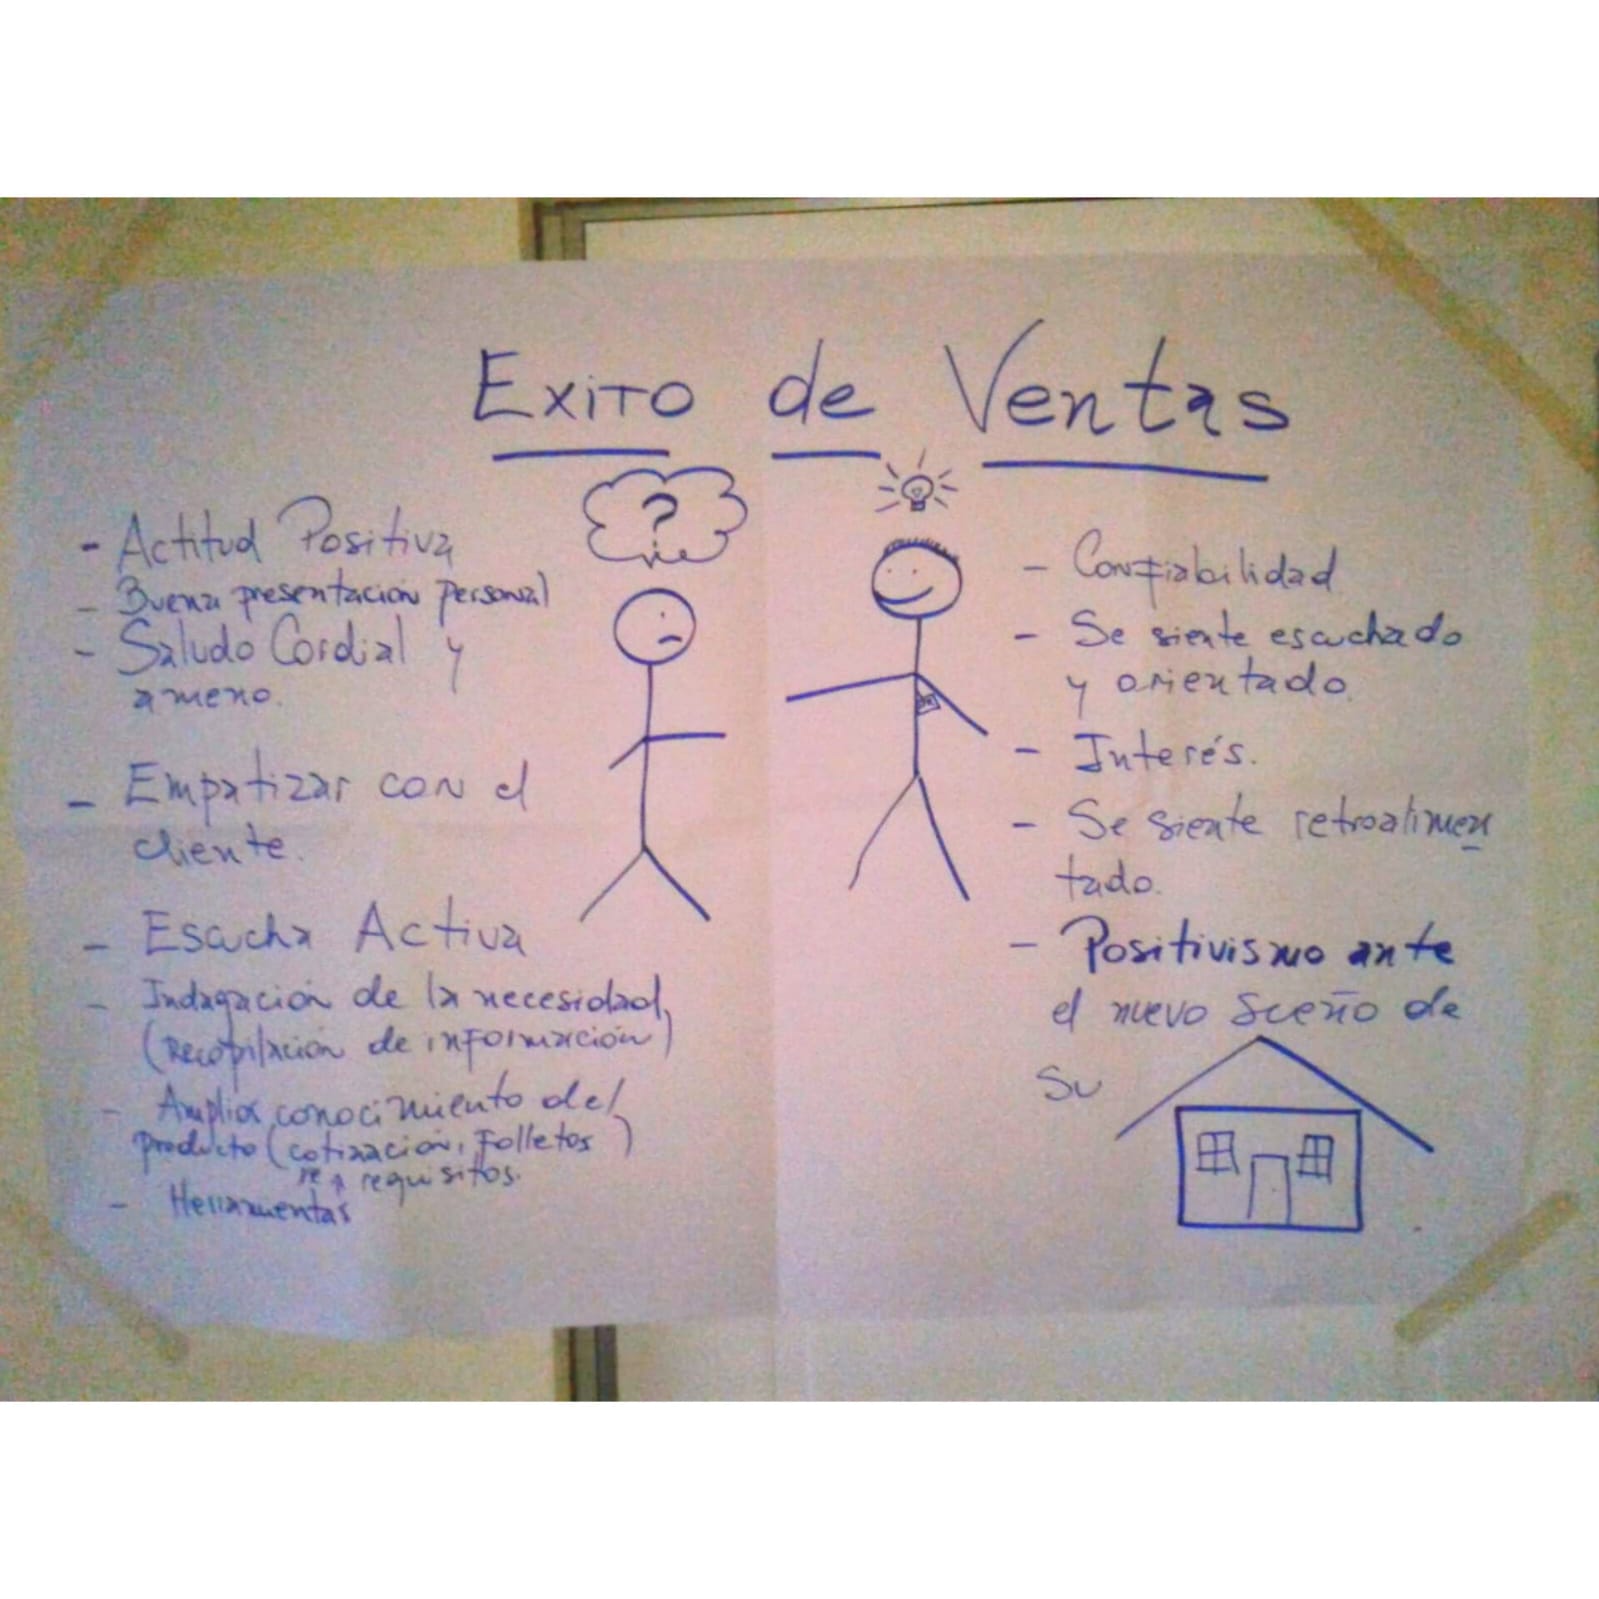 Exito de Ventas
?
- Actitud Positiva
- Buena presentación personal
- Saludo Cordial y
ameno.
- Empatizar con el
cliente.
- Escucha Activa
- Indagación de la necesidad,
(recopilación de información)
- Amplios conocimiento del
producto (cotización, Folletos)
requisitos.
- Herramientas
- Confiabilidad
- Se siente escuchado
y orientado.
- Interés.
- Se siente retroalimen
tado.
- Positivismo ante
el nuevo Sueño de
Su